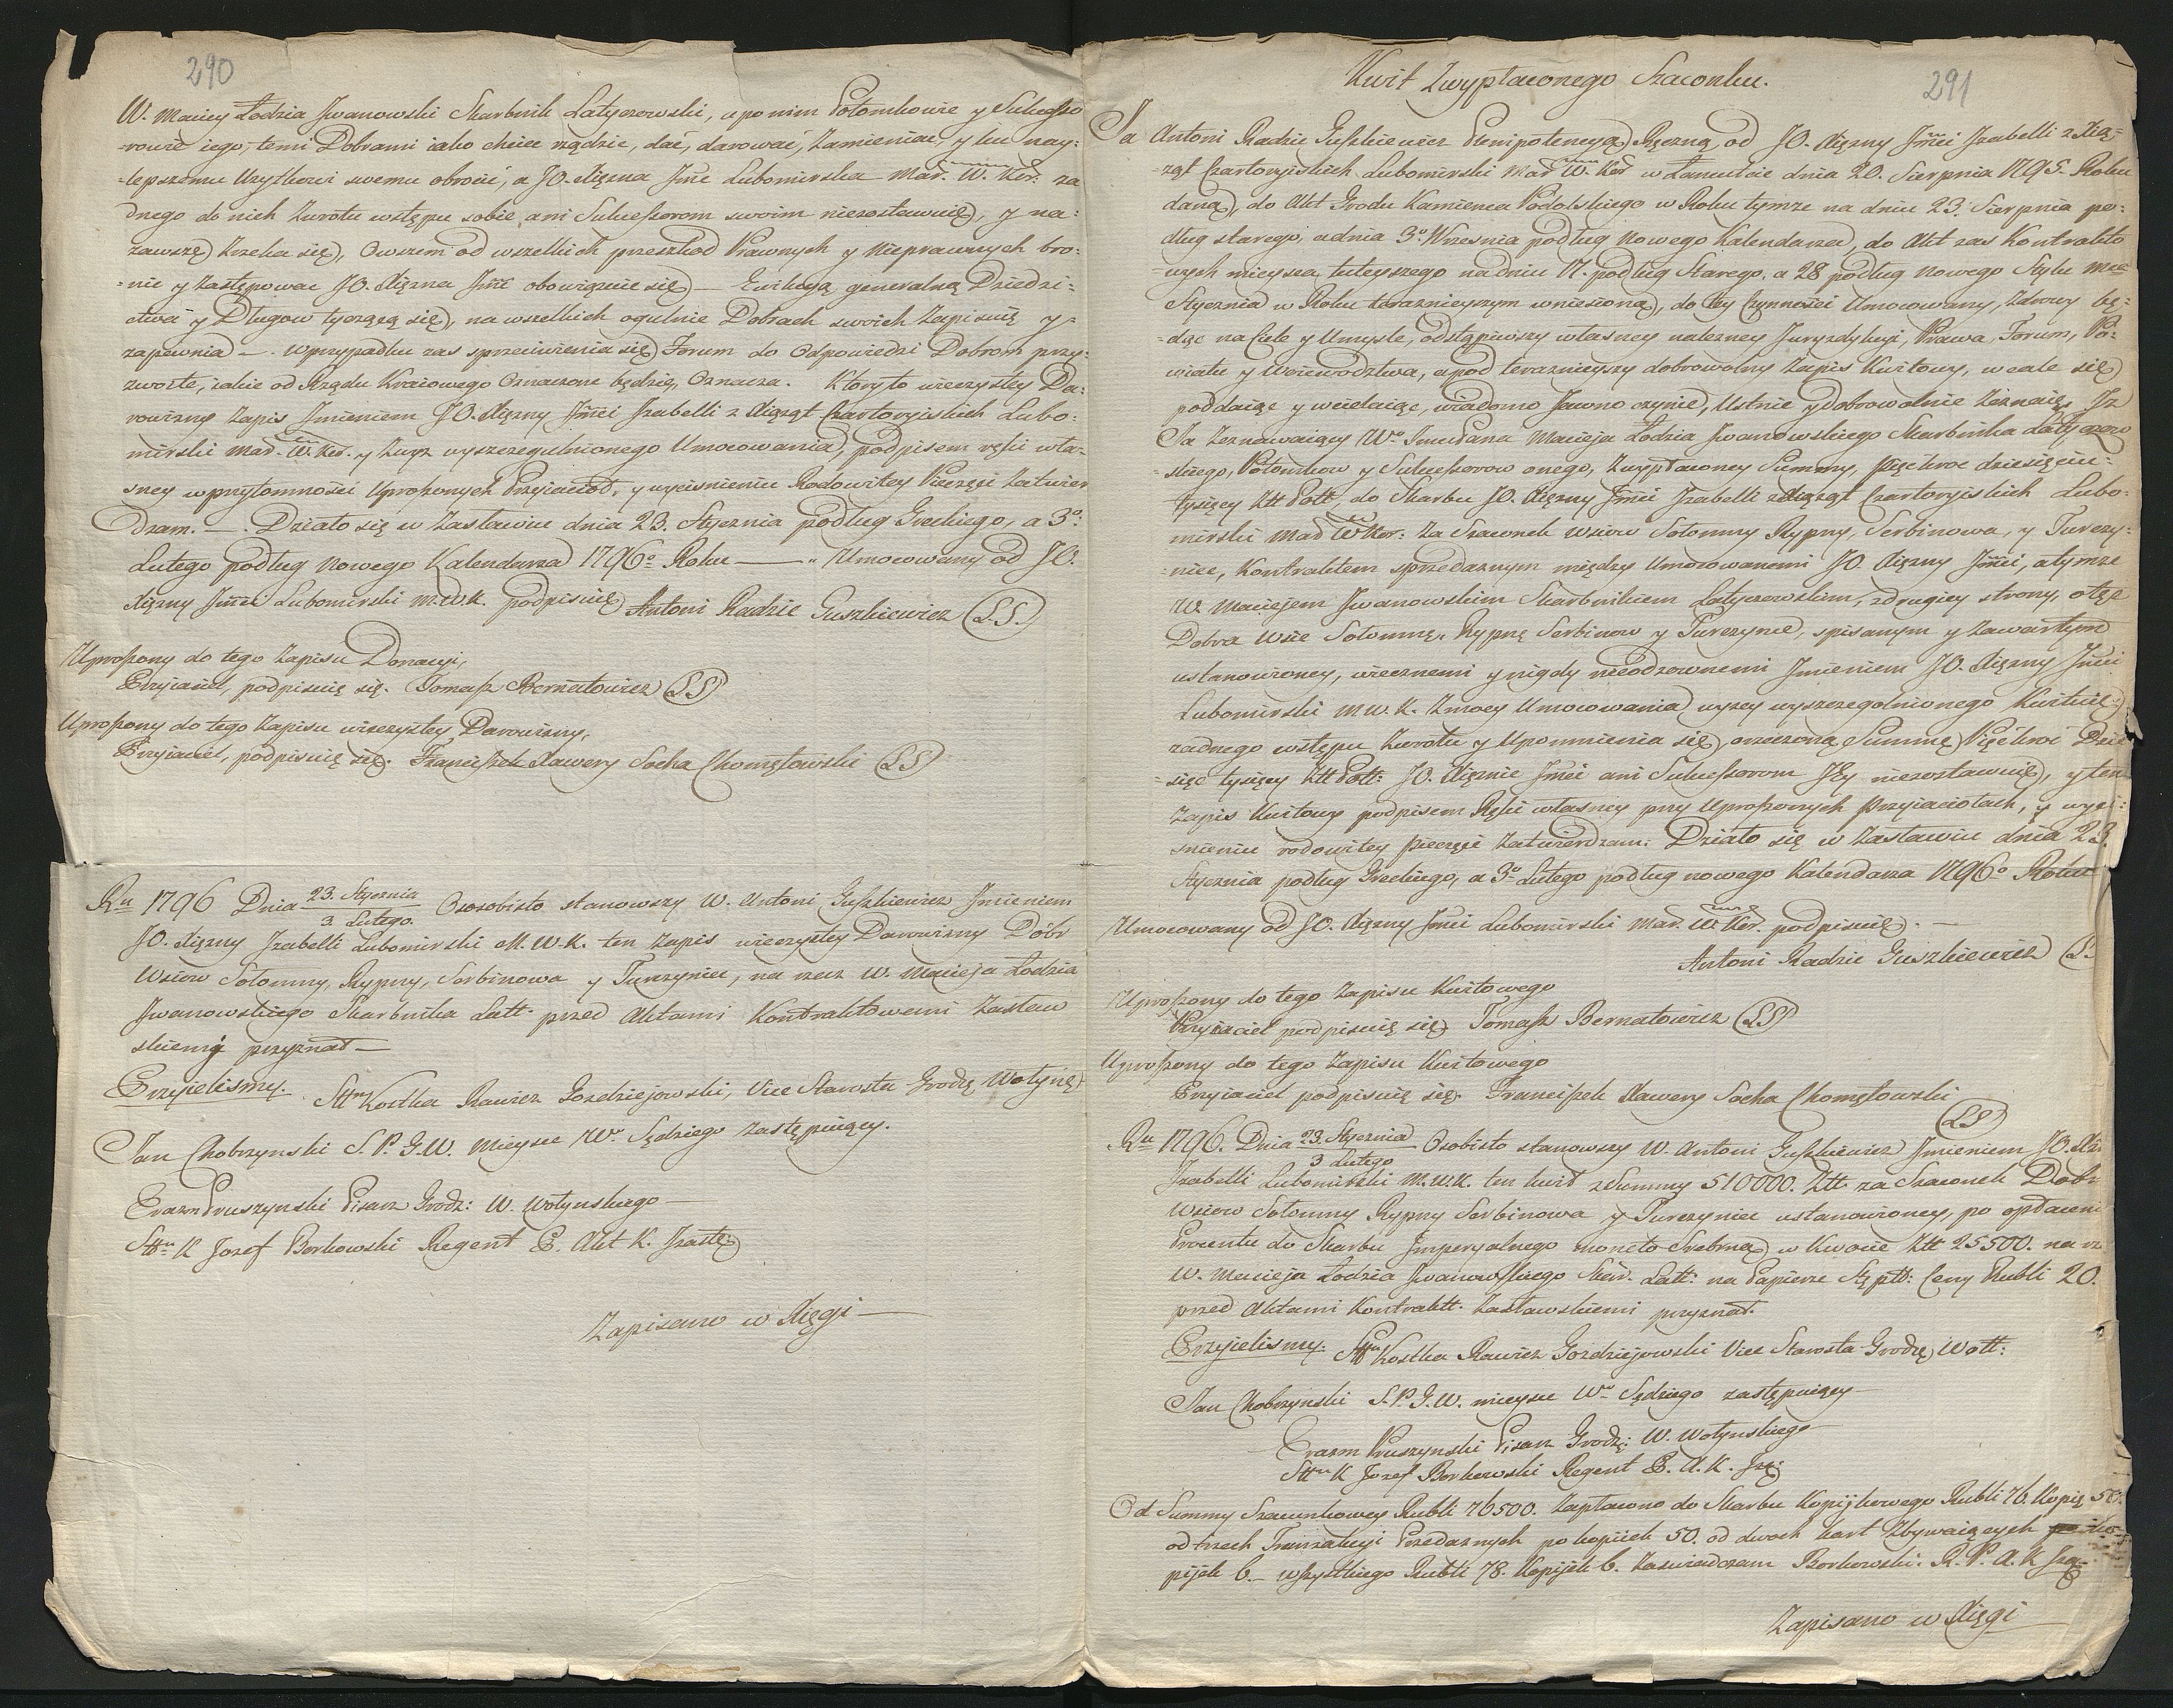 290
W. Maciey Łodzia Jwanowski Skarbnik Latyczowski, a po nim Potomkowie y Sukceſso
-rowie iego, temi Dobrami iako chcieć rządzic, dać, darować, Zamieniać, y ku nay-
-lepszemu Użytkowi swemu obrocić, a JO. Xiężna Jmć Lubomirska Mar. W. Kor. ża
dnego do nich Zwrotu wstępu sobie ani Sukceſsorom swoim niezostawuię, y na-
zawszę Zrzeka się, Owszem od wszelkich przeszkod Prawnych y Nieprawnych bro-
-nić y Zastępować JO. Xiężna Jmć obowiązuie się — Ewikcyą generalną Dziedzi-
ctwa y Długow tyczącą się, na wszelkich ogulnie Dobrach swoich Zapisuię y
zapewnia —. w przypadku zas sprzeciwienia się Forum do Odpowiedzi Dobrom przy-
zwoite, iakie od Rządu Kraiowego Oznaczone będzie, Oznacza. Ktory to wieczystey Da-
rowizny Zapis Jmieniem JO. Xiężny Jmći Jzabelli z Xiążąt Czartoryiskich Lubo-
mirski Mar. W. Kor. y Zwyż wyszczegulnionego Umocowania, podpisem ręki wła-
sney w przytomności Uproſzonych Przyiacioł, y wyciśnieniu Rodowitey Pieczęci Zatwier
dzam. —. Działo się w Zasławiu dnia 23. Stycznia podług Greckiego, a 3º
Lutego podług Nowego Kalendarza 1796º Roku — " Umocowany od JO.
Xiężny Jmći Lubomirski M.W.K. podpisuię Antoni Radzic Guszkiewicz (L.S.)
Uproſzony do tego Zapisu Donacyi,
Przyiaciel, podpisuię się. Tomaſz Bernatowicz (LS)
Uproſzony do tego Zapisu wieczystey Darowizny,
Przyiaciel, podpisuię się. Franciſzek Xawery Socha Chomętowski (LS)
Ru 1796 Dnia 23. Stycznia / 3 Lutego. Ososobisto stanowszy W. Antoni Guſzkiewicz Jmieniem
JO. Xiężny Jzabelli Lubomirski M. W. K. ten Zapis wieczystey Darowizny Dobr
Wsiow Sołomny, Rypny, Serbinowa y Turczyniec, na rzecz W. Macieja Łodzia
Jwanowskiego Skarbnika Latt. przed Aktami Kontraktowemi Zasław
skiemi przyznał —
Przyielismy. Sttn Kostka Rawicz Gozdziejowski, Vice Starosta Grodz. Wołynś
Jan Chobrzynski S. P. G. W. Mieysce Wo Sędziego Zastępuiący.
Erazm Pruszynski Pisarz Grodz: W. Wołynskiego —
Sttn K Jozef Borkowski Regent E. Akt K.
Zapisano w Xięgi —
291
Kwit Zwypłaconego Szacunku.
Ja Antoni Radzic Guſzkiewicz Plenipotencyą Ręczną od JO. Xiężny Jmći Jzabelli z Xią-
-żąt Czartoryiskich Lubomirski Mar W. Kor w Łancucie dnia 20. Sierpnia 1795. Roku
daną, do Akt Grodu Kamienca Podolskiego w Roku tymże na dniu 23. Sierpnia po-
dług starego, a dnia 3º Wrzesnia podług Nowego Kalendarza, do Akt zas Kontrakto
-wych mieysca tuteyszego na dniu 17. podług Starego, a 28 podług Nowego Stylu Mca
Stycznia w Roku terazniejszym wniesioną, do tey Czynności Umocowany, Zdrowy bę-
-dąc na Ciele y Umysle, odstąpiwszy własney należney Juryzdykcyi, Prawa, Forum, Po-
wiatu y Woiewodztwa, a pod terazniejszy dobrowolny Zapis Kwitowy, wcale się
poddaiąc y wcielaiąc, wiadomo Jawno czynię, Ustnie y Dobrowolnie Zeznaię, Jż
Ja Zeznawaiący Wo Jmci Pana Macieja Łodzia Jwanowskiego Skarbnika Latyczow
-skiego, Potomkow y Sukceſsorow onego, Zwypłaconey Summy, Pięckroć dziesięciu
tysięcy Ztt Poll, do Skarbu JO. Xiężny Jmći Jzabelli z Xiążąt Czartoryiskich Lubo-
mirski Mar W Kor: Za Szacunek Wsiow Sołomny Rypny, Serbinowa, y Turczy-
-niec, Kontraktem sprzedażnym między Umocowanemi JO. Xiężny Jmći, a tymże
W. Maciejem Jwanowskim Skarbnikiem Latyczowskim, z drugiey strony, o też
Dobra Wsie Sołomnę, Rypnę Serbinow y Turczynie, spisanym y Zawartym
ustanowioney, wiecznemi y nigdy nieodzownemi Jmieniem JO. Xiężny Jmći
Lubomirski M.W.K. Zmocy Umocowania wyżey wyszczegolnionego Kwituię,
żadnego wstępu Zwrotu y Upomnienia się, orzeczoną Summę Pięckroć Dzie
-sięć tysięcy Ztt Poll: JO. Xiężnie Jmći ani Sukceſsorom JEy niezostawuię, y ten
Zapis Kwitowy podpisem Ręki własney przy Uproſzonych Przyiaciołach, y wyci-
snieniu rodowitey pieczęci Zatwierdzam: Działo się w Zasławiu dnia 23.
Stycznia podług Greckiego, a 3º Lutego podług nowego Kalendarza 1796º Roku
Umocowany od JO. Xiężny Jmći Lubomirski Mar. W. Kor. podpisuię. —
Antoni Radzic Guszkiewicz (L
Uproſzony do tego Zapisu Kwitowego
Przyiaciel podpisuię się Tomaſz Bernatowicz (LS)
Uproſzony do tego Zapisu Kwitowego
Przyiaciel podpisuię się. Franciſzek Xawery Socha Chomętowski
(LS)
Ru 1796. Dnia 23. Stycznia / 3 Lutego Osobisto stanowszy W. Antoni Guſzkiewicz Jmieniem JO. Xię
Jzabelli Lubomirski M.W.K. ten kwit z Summy 510000. Ztt. za Szacunek Dobr
Wsiow Sołomny Rypny Serbinowa y Turczyniec ustanowioney, po opłaceni
Procentu do Skarbu Jmperyalnego monetą Srebrną w Kwocie Ztt 25500. na rz
W. Macieja Łodzia Jwanowſkiego Skar. Latt: na Papierze Stępll: Ceny Rubli 20.
przed Aktami Kontraktt. Zasławskiemi przyznał.
Przyielismy. Sttn Kostka Rawicz Gozdziejowski Vice Starosta Grodz. Wołł:
Jan Chobrzynski S. P. G. W. mieysce Wo Sędziego zastępuiący —
Erazm Pruszynski Pisarz Grodz: W. Wołynskiego —
Sttn K Jozef Borkowski Regent E. A. K.
Od Summy Szacunkowey Rubli 76500. Zapłacono do Skarbu Kopijkowego Rubli 76. Kopię 50.
od trzech Tranzakcyi Przedaznych po kopiiek 50. od dwoch kart Zbywaiących po ko-
pijek 6. — wſzystkiego Rubli 78. Kopijek 6. Zaswiadczam Borkowski. R. P. A. K
Zapisano w Xięgi —